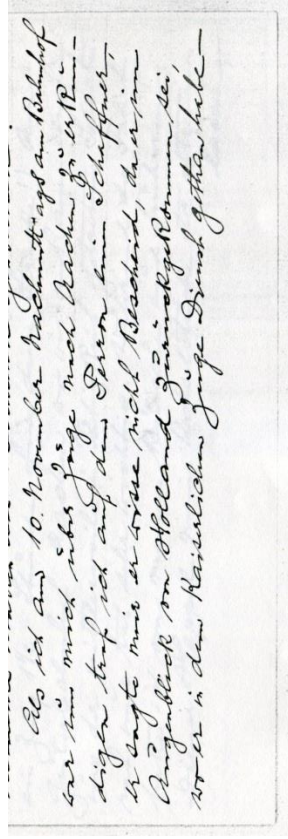 Als ich am 10 November Nachmittags a. Bahnhof
war um mich über Züge nach Aachen zu erkun-
digen traf ich auf dem Perron ein Schaffner
er sagte mir er wisse nicht Bescheid, da er im
Augenblick von Holland zurückgekommen sei,
wo er in dem Kaiserlichen Zuge Dienst gethan habe